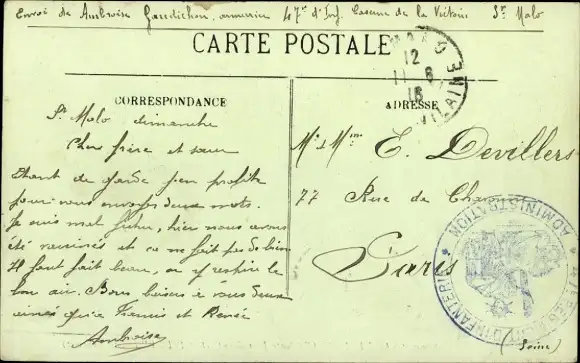 Envoi de Ambroise Gaudichon, armurier 47e d'Inf. Caserne de la Victoire St Malo
CARTE POSTALE
12
11-6
15
VILAINE
CORRESPONDANCE
ADRESSE
St Malo dimanche
Cher frère et sœur
Etant de garde j'en profite
pour vous envoyer deux mots.
Je suis mal foutu, hier nous avons
été vaccinés et ça ne fait pas de bien
Il fait fait beau, on y respire le
bon air. Bons baisers à vous deux
ainsi qu'à Francis et Renée
Ambroise
Mr & Mme E. Devillers
77 Rue de
Paris
(Seine)
ADMINISTRATION
D'INFANTERIE